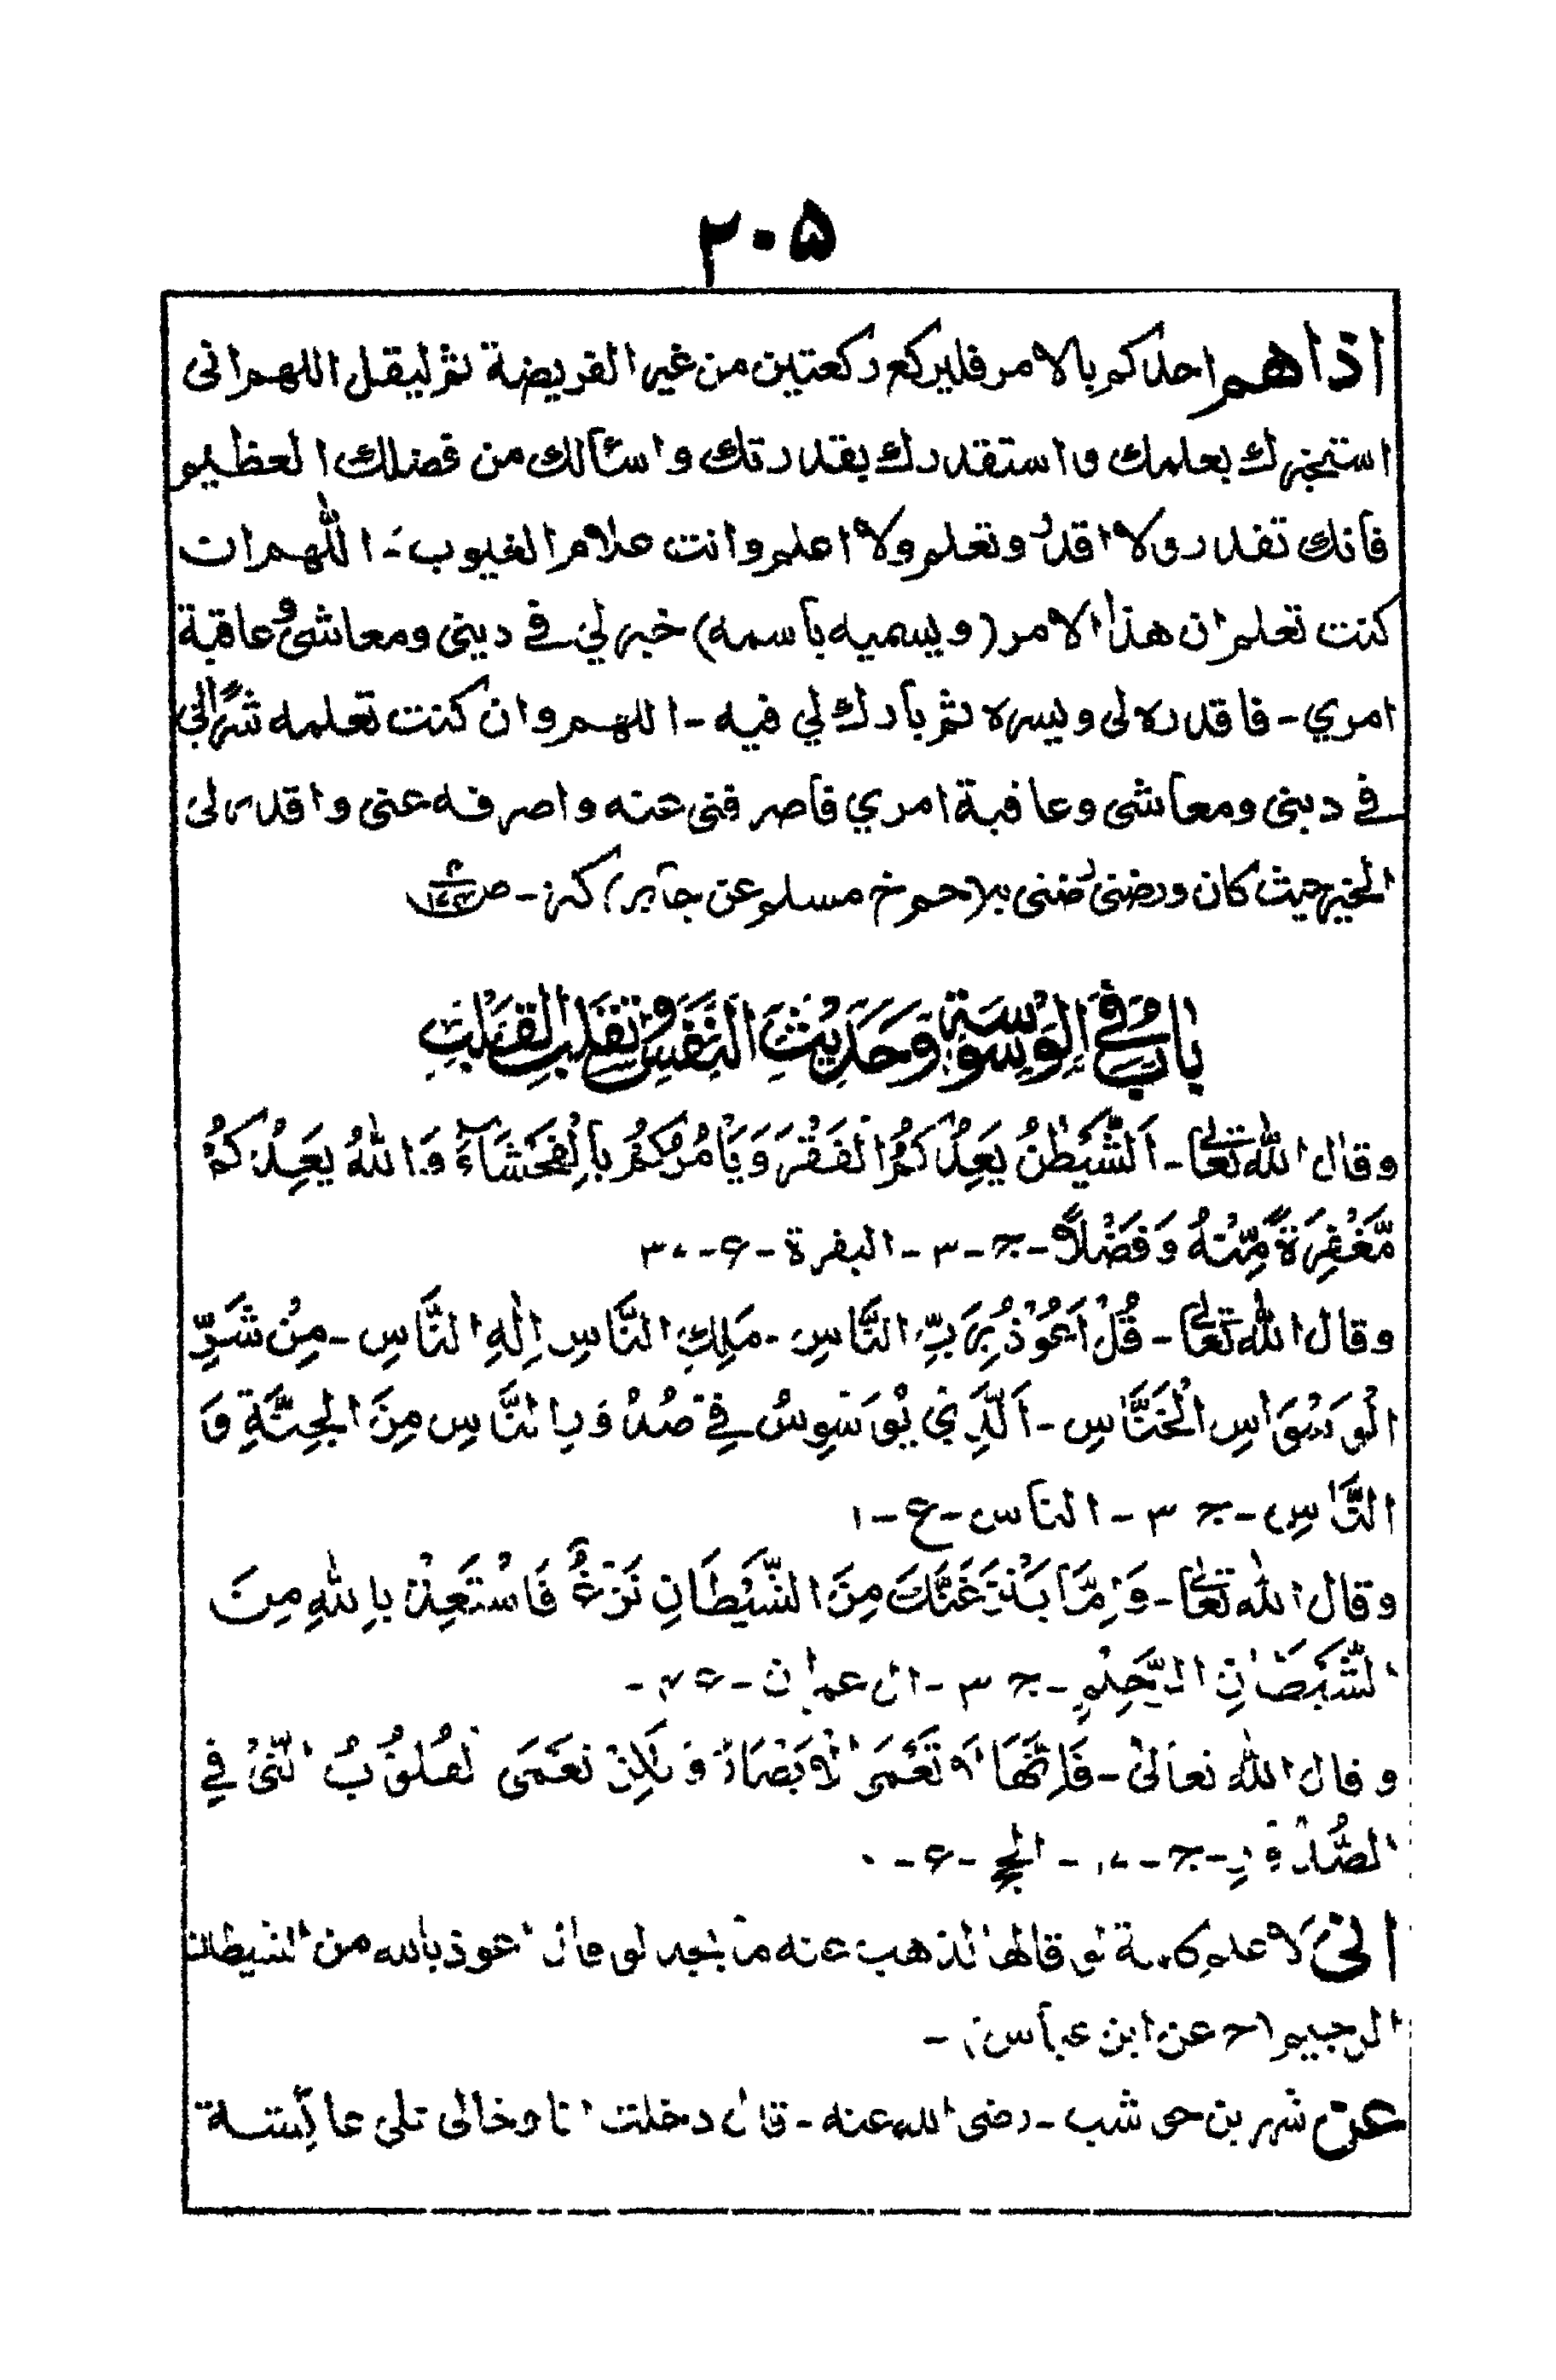 ۲۰۵
اذا هم احدكم بالامر فليركع ركعتين من غير الفريضة ثم ليقل اللهم انى
استخيرك بعلمك واستقدرك بقدرتك واسئالك من فضلك العظيم
فانك تقدر ولا اقدر وتعلم ولا اعلم وانت علام الغيوب- اللهم ان
كنت تعلم ان هذا الامر (ويسميه باسمه) خير لي في دينى ومعاشى وعاقبة
امري- فاقدره لى ويسره ثم بارك لي فيه- اللهم وان كنت تعلمه شرًا لى
في دينى ومعاشى وعاقبة امري فاصرفنى عنه واصرفه عنى واقدر لى
الخير حيث كان ورضنى به (حم خ مسلم عن جابر) كنز- ص
بَابٌ فِي الْوَسْوَسَةِ وَحَدِيْثِ النَّفْسِ وَتَقَلُّبِ الْقَلْبِ
وقال الله تعالى- اَلشَّيْطٰنُ يَعِدُكُمُ الْفَقْرَ وَيَاْمُرُكُمْ بِالْفَحْشَآءِ وَاللهُ يَعِدُكُمْ
مَّغْفِرَةً مِّنْهُ وَفَضْلًا- ج- ۳- البقرة- ع- ۳۷
وقال الله تعالى- قُلْ اَعُوْذُ بِرَبِّ النَّاسِ- مَلِكِ النَّاسِ اِلٰهِ النَّاسِ- مِنْ شَرِّ
الْوَسْوَاسِ الْخَنَّاسِ- اَلَّذِي يُوَسْوِسُ فِي صُدُوْرِ النَّاسِ مِنَ الْجِنَّةِ وَ
النَّاسِ- ج ۳- الناس- ع- ۱
وقال الله تعالى- وَاِمَّا يَنْزَغَنَّكَ مِنَ الشَّيْطَانِ نَزْغٌ فَاسْتَعِذْ بِاللهِ مِنَ
الشَّيْطَانِ الرَّجِيْمِ- ج ۳- ال عمران- ع ۴-
وقال الله تعالىٰ- فَاِنَّهَا لَا تَعْمَى الْاَبْصَارُ وَلٰكِنْ تَعْمَى الْقُلُوْبُ الَّتِيْ فِي
الصُّدُوْرِ- ج- ۱۷- الحج- ع- ۰
انى لاعلم كلمة لو قالها لذهب عنه ما يجد لو قال اعوذ بالله من الشيطان
الرجيم (ح عن ابن عباس)-
عن شهر بن حوشب- رضى الله عنه- قال دخلت انا وخالى على عائشة